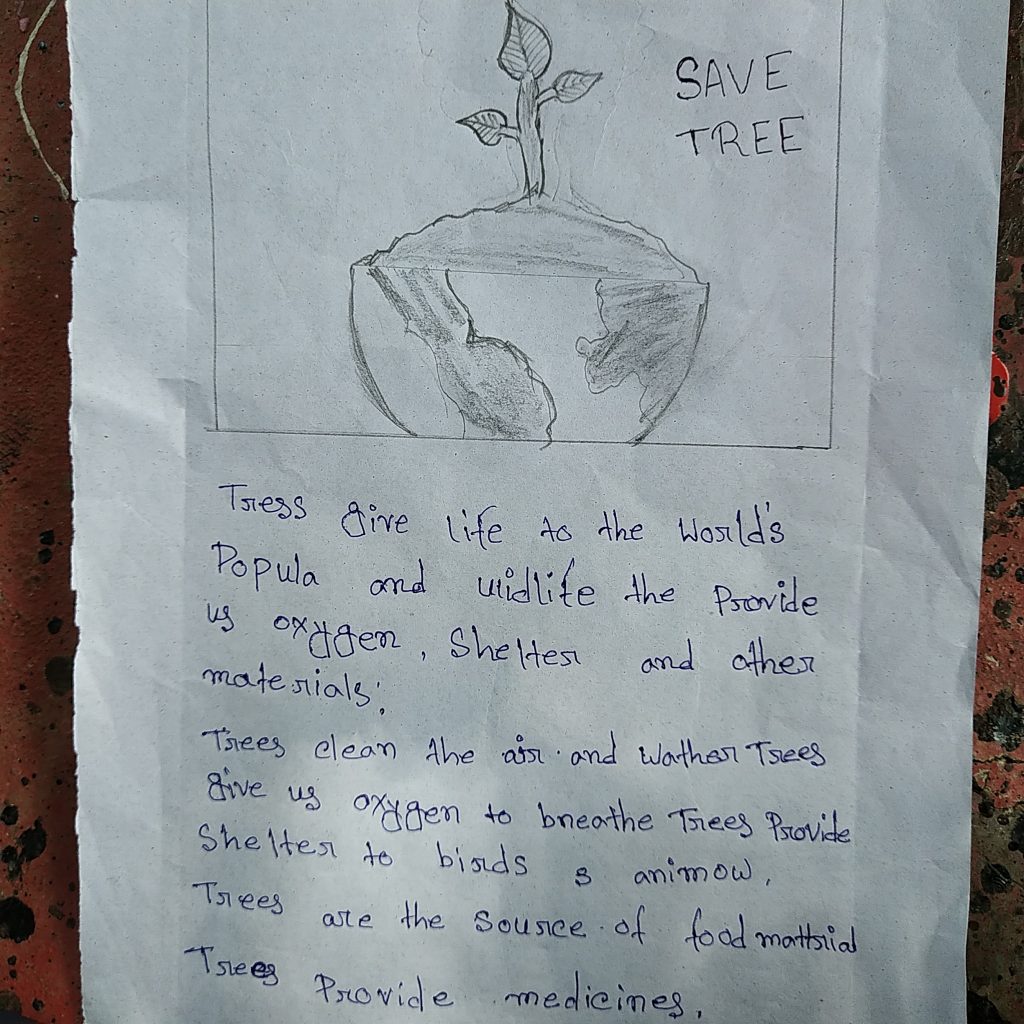 SAVE
TREE
Tress give life to the World's
Popula and widlife the Provide
us oxygen, Shelter and other
materials.
Trees clean the air. and wather Trees
give us oxygen to breathe Trees Provide
Shelter to birds s animow,
Trees are the source of food mattrial
Trees Provide medicines.